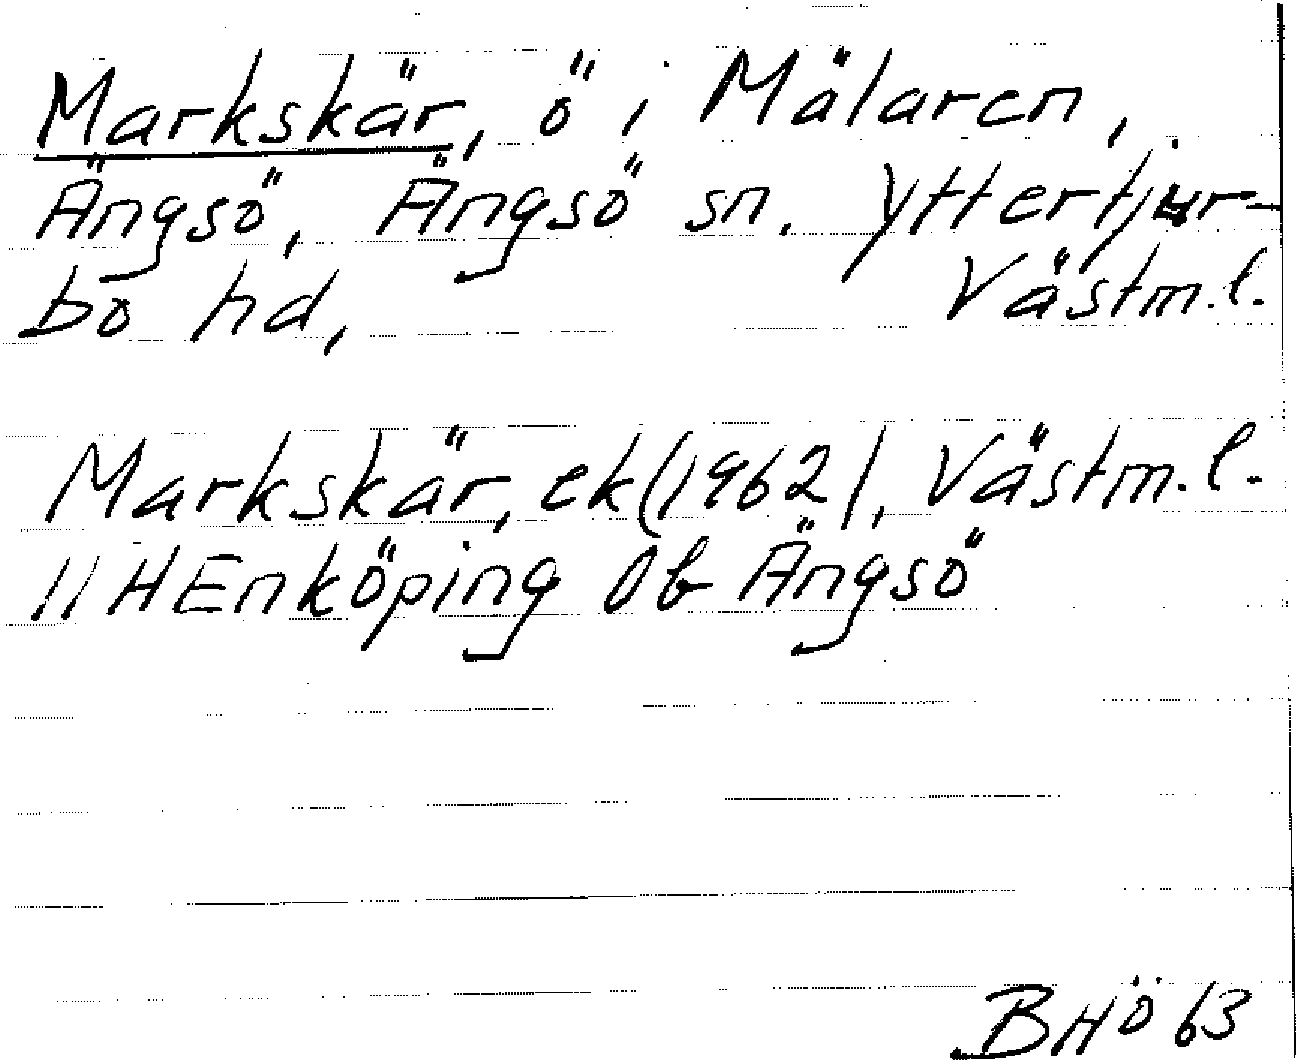 Markskär, ö i Mälaren,
Ängsö, Ängsö sn. Yttertjur-
bo hd, Västm.l.
Markskär, ek (1962), Västm.l.
11HEnköping 0b Ängsö
BHÖ 63